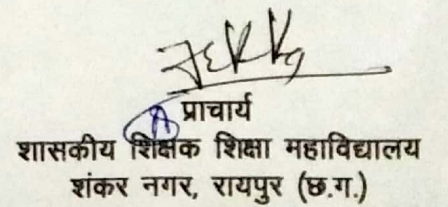 प्राचार्य
शासकीय शिक्षक शिक्षा महाविद्यालय
शंकर नगर, रायपुर (छ.ग.)